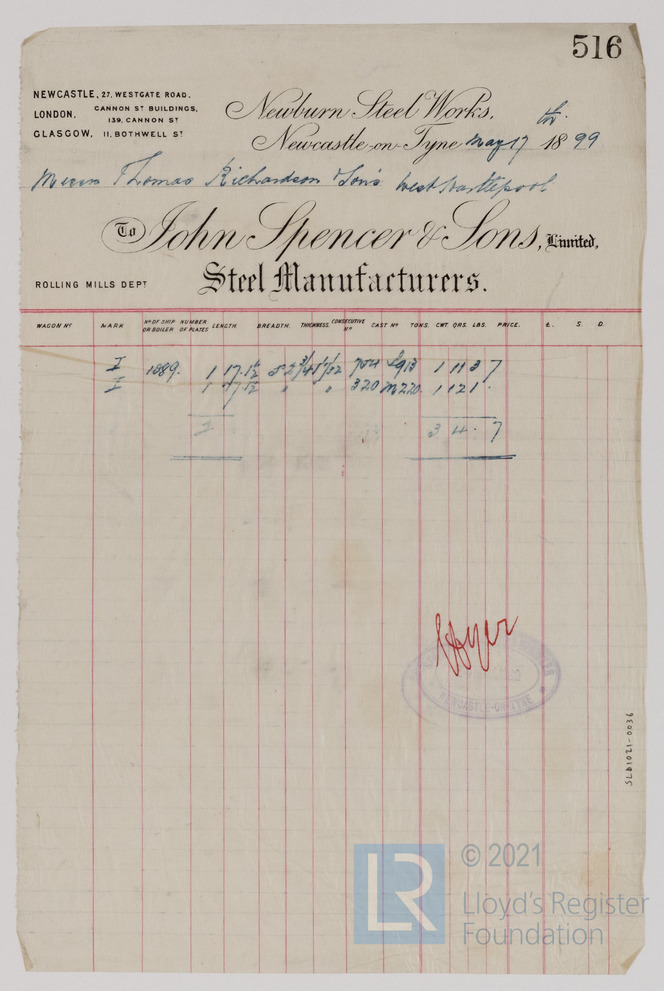 516
NEWCASTLE, 27, WESTGATE ROAD.
LONDON, CANNON ST BUILDINGS,
139, CANNON ST
GLASGOW, 11, BOTHWELL ST
Newburn Steel Works,
Newcastle-on-Tyne May 17 th 1899
Messrs Thomas Richardson & Sons West Hartlepool
To John Spencer & Sons, Limited,
Steel Manufacturers.
ROLLING MILLS DEPT
WAGON No MARK No OF SHIP OR BOILER NUMBER OF PLATES LENGTH. BREADTH. THICKNESS. CONSECUTIVE No CAST No TONS. CWT QRS. LBS. PRICE. £. S. D.
I 1689. 1 17.1½ 52¾ 704 1 11 3 7
I 1 17.1½ " " 320 M220. 1 12 1 .
3 4 . 7
NEWCASTLE-ON-TYNE
SLB1021-0036
LR
© 2021
Lloyd's Register
Foundation